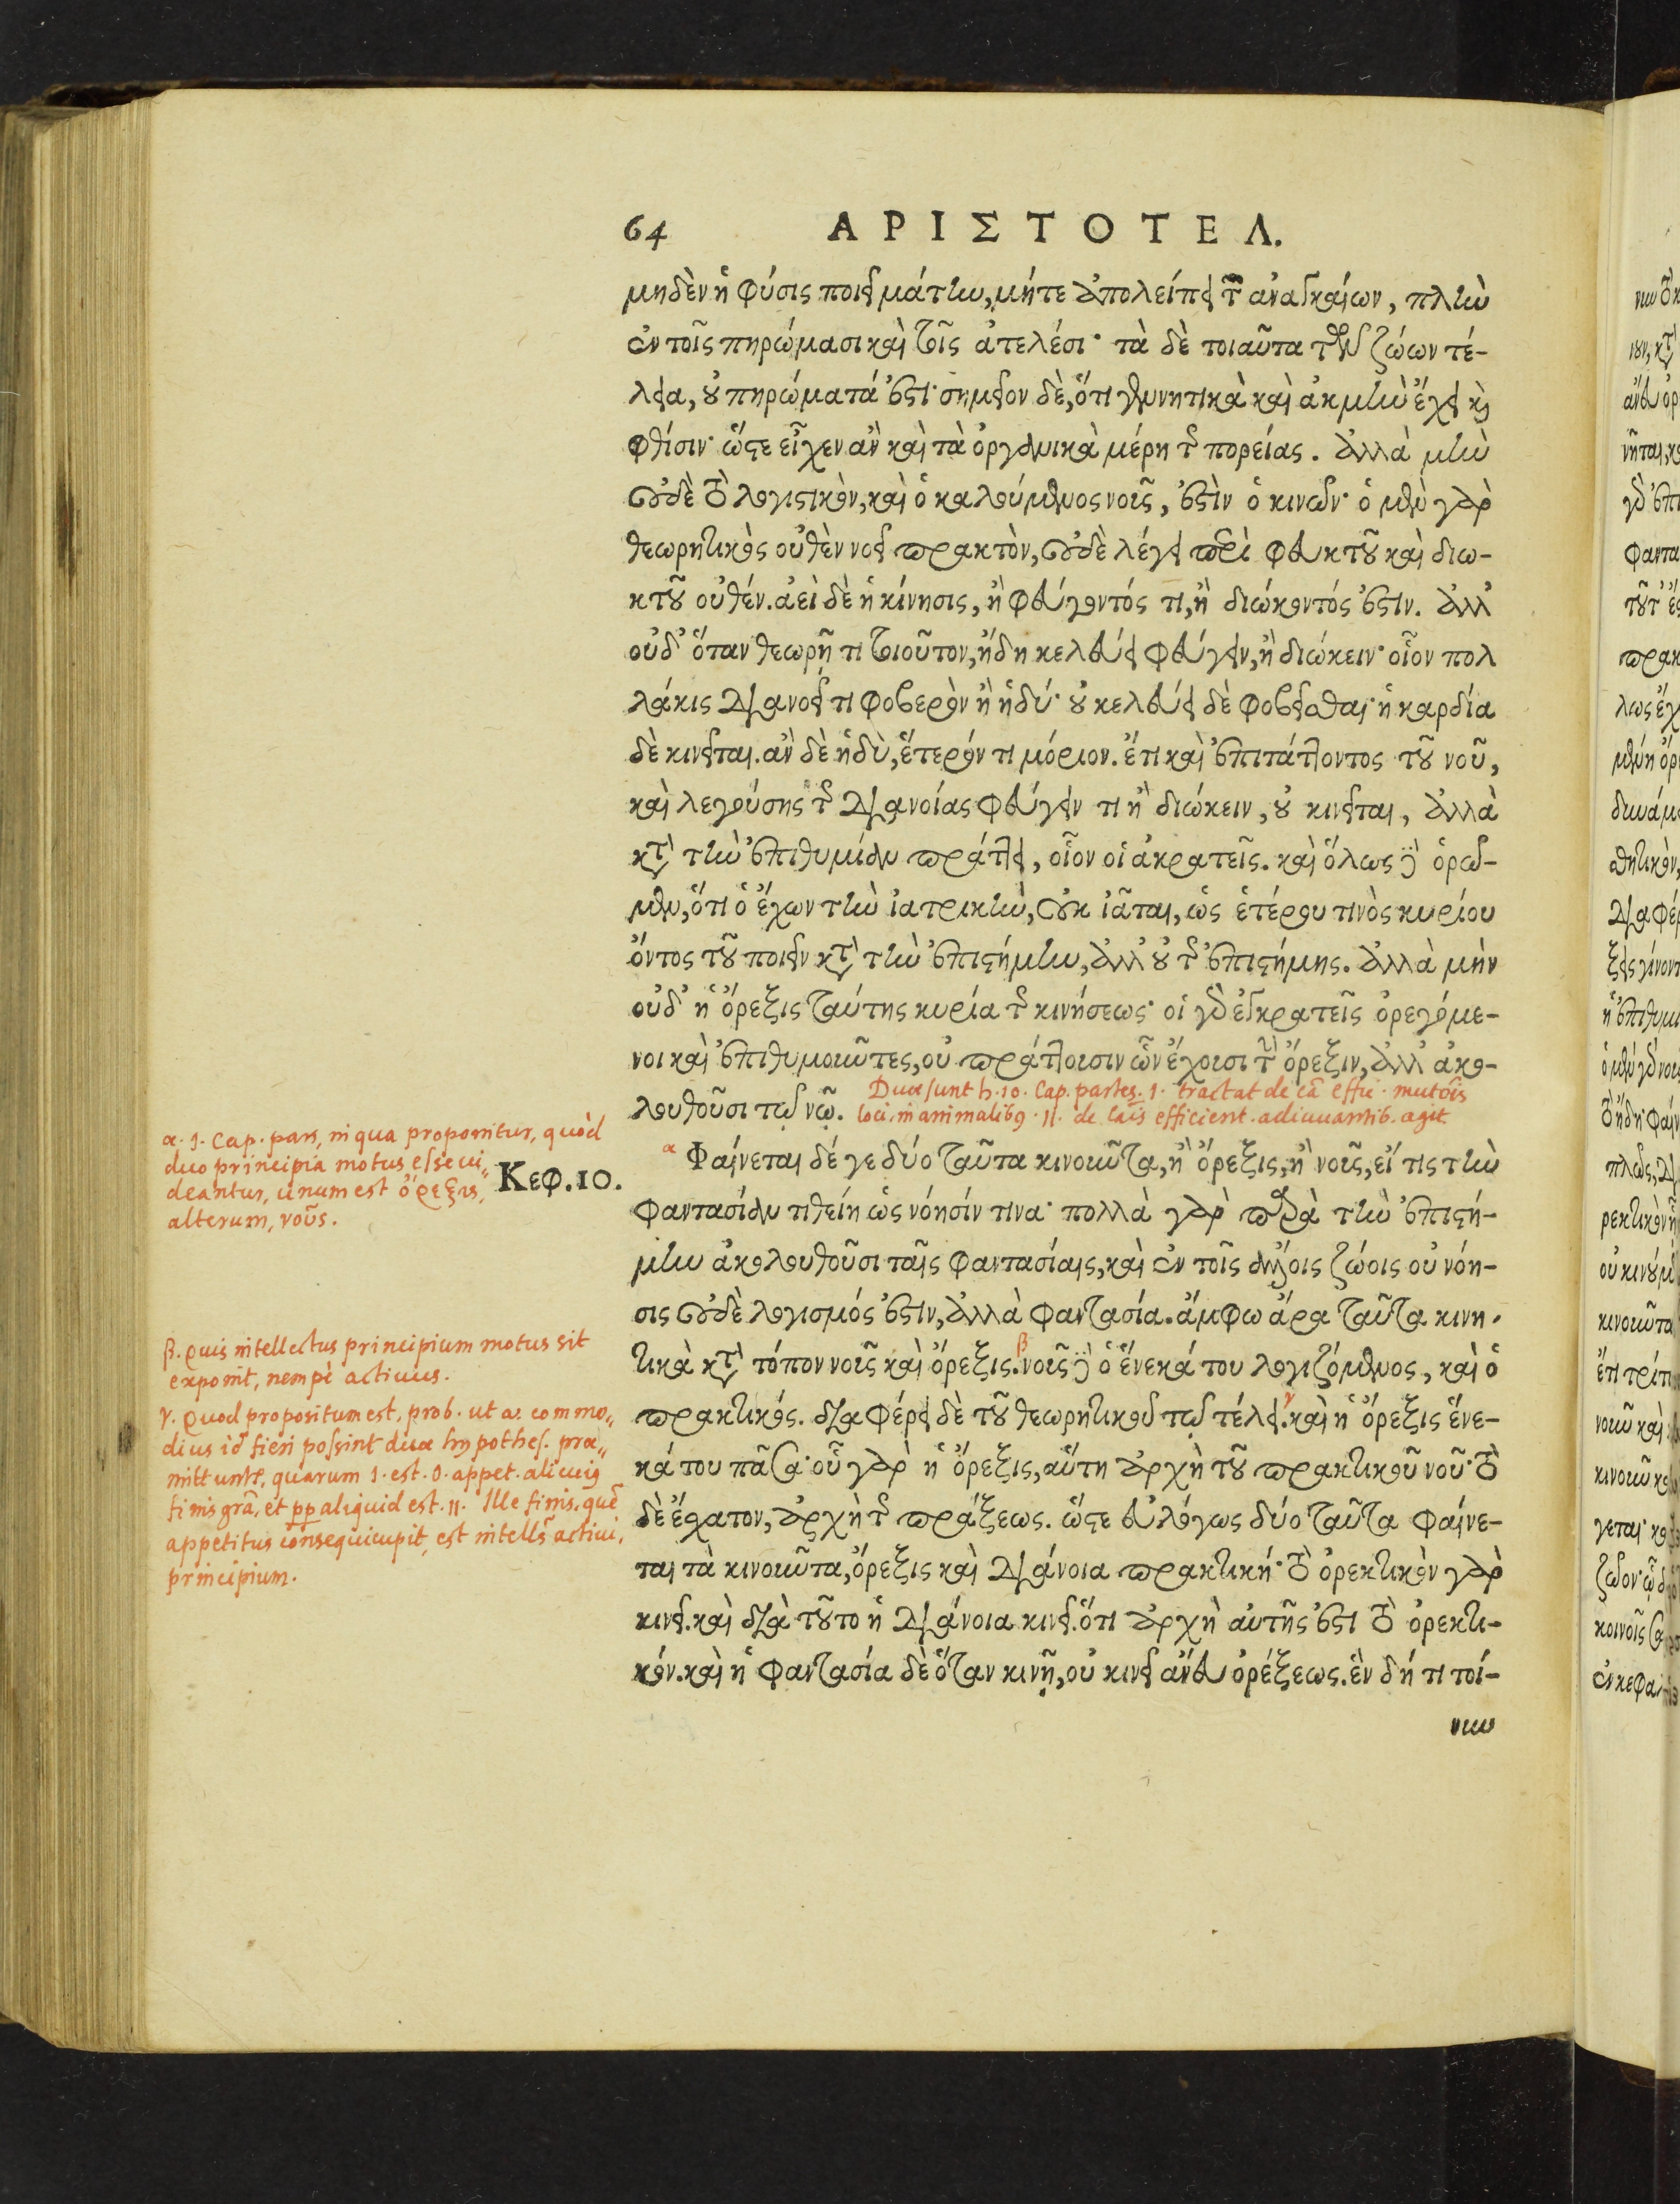 64 ΑΡΙΣΤΟΤΕΛ.
μηδὲν ἡ φύσις ποιεῖ μάτην, μήτε ἀπολείπει τῶν ἀναγκαίων, πλὴν
ἐν τοῖς πηρώμασι καὶ τοῖς ἀτελέσι· τὰ δὲ τοιαῦτα τῶν ζώων τέ-
λεια, οὐ πηρώματά ἐστι· σημεῖον δὲ, ὅτι γεννητικὰ καὶ ἀκμὴν ἔχει καὶ
φθίσιν· ὥστε εἶχεν ἂν καὶ τὰ ὀργανικὰ μέρη τῆς πορείας. ἀλλὰ μὴν
οὐδὲ τὸ λογιστικὸν, καὶ ὁ καλούμενος νοῦς, ἐστὶν ὁ κινῶν· ὁ μὲν γὰρ
θεωρητικὸς οὐθὲν νοεῖ πρακτὸν, οὐδὲ λέγει περὶ φευκτοῦ καὶ διω-
κτοῦ οὐθέν. ἀεὶ δὲ ἡ κίνησις, ἢ φεύγοντός τι, ἢ διώκοντός ἐστιν. ἀλλ'
οὐδ' ὅταν θεωρῇ τι τοιοῦτον, ἤδη κελεύει φεύγειν, ἢ διώκειν· οἷον πολ
λάκις διανοεῖ τι φοβερὸν ἢ ἡδύ· οὐ κελεύει δὲ φοβεῖσθαι· ἡ καρδία
δὲ κινεῖται. ἂν δὲ ἡδὺ, ἕτερόν τι μόριον. ἔτι καὶ ἐπιτάττοντος τοῦ νοῦ,
καὶ λεγούσης τῆς διανοίας φεύγειν τι ἢ διώκειν, οὐ κινεῖται, ἀλλὰ
κατὰ τὴν ἐπιθυμίαν πράττει, οἷον οἱ ἀκρατεῖς. καὶ ὅλως δὲ ὁρῶ-
μεν, ὅτι ὁ ἔχων τὴν ἰατρικὴν, οὐκ ἰᾶται, ὡς ἑτέρου τινὸς κυρίου
ὄντος τοῦ ποιεῖν κατὰ τὴν ἐπιστήμην, ἀλλ' οὐ τῆς ἐπιστήμης. ἀλλὰ μήν
οὐδ' ἡ ὄρεξις ταύτης κυρία τῆς κινήσεως· οἱ γὰρ ἐγκρατεῖς ὀρεγόμε-
νοι καὶ ἐπιθυμοῦντες, οὐ πράττουσιν ὧν ἔχουσι τὴν ὄρεξιν, ἀλλ' ἀκο-
λουθοῦσι τῷ νῷ.
Duae sunt h. 10. Cap. partes. 1. tractat de cā effic. mutōis
loci in animalib9. 11. de cāis efficient. adiuuantib. agit.
α. 1. Cap. pars, in qua proponitur, quòd
duo principia motus esse ui„
deantur, unum est ὄρεξις,
alterum, νοῦς.
Κεφ. 10.
α Φαίνεται δέ γε δύο ταῦτα κινοῦντα, ἢ ὄρεξις, ἢ νοῦς, εἴ τις τὴν
φαντασίαν τιθείη ὡς νόησίν τινα· πολλὰ γὰρ παρὰ τὴν ἐπιστή-
μην ἀκολουθοῦσι ταῖς φαντασίαις, καὶ ἐν τοῖς ἄλλοις ζώοις οὐ νόη-
σις οὐδὲ λογισμός ἐστιν, ἀλλὰ φαντασία. ἄμφω ἄρα ταῦτα κινη-
τικὰ κατὰ τόπον νοῦς καὶ ὄρεξις. β νοῦς δὲ ὁ ἕνεκά του λογιζόμενος, καὶ ὁ
πρακτικός. διαφέρει δὲ τοῦ θεωρητικοῦ τῷ τέλει. γ καὶ ἡ ὄρεξις ἕνε-
κά του πᾶσα· οὗ γὰρ ἡ ὄρεξις, αὕτη ἀρχὴ τοῦ πρακτικοῦ νοῦ· τὸ
δὲ ἔσχατον, ἀρχὴ τῆς πράξεως. ὥστε εὐλόγως δύο ταῦτα φαίνε-
ται τὰ κινοῦντα, ὄρεξις καὶ διάνοια πρακτική· τὸ ὀρεκτικὸν γὰρ
κινεῖ. καὶ διὰ τοῦτο ἡ διάνοια κινεῖ. ὅτι ἀρχὴ αὐτῆς ἐστι τὸ ὀρεκτι-
κόν. καὶ ἡ φαντασία δὲ ὅταν κινῇ, οὐ κινεῖ ἄνευ ὀρέξεως. ἓν δή τι τοί-
νυν
β. quis intellectus principium motus sit
exponit, nempè actiuus.
γ. Quod propositum est, prob. ut a. commo„
dius id fieri possint duae hypothes. prae„
mittuntr, quarum 1. est. o. appet. alicui9
finis grā, et pp aliquid est. 11. Ille finis, quē
appetitus consequi cupit, est intells actiui,
principium.